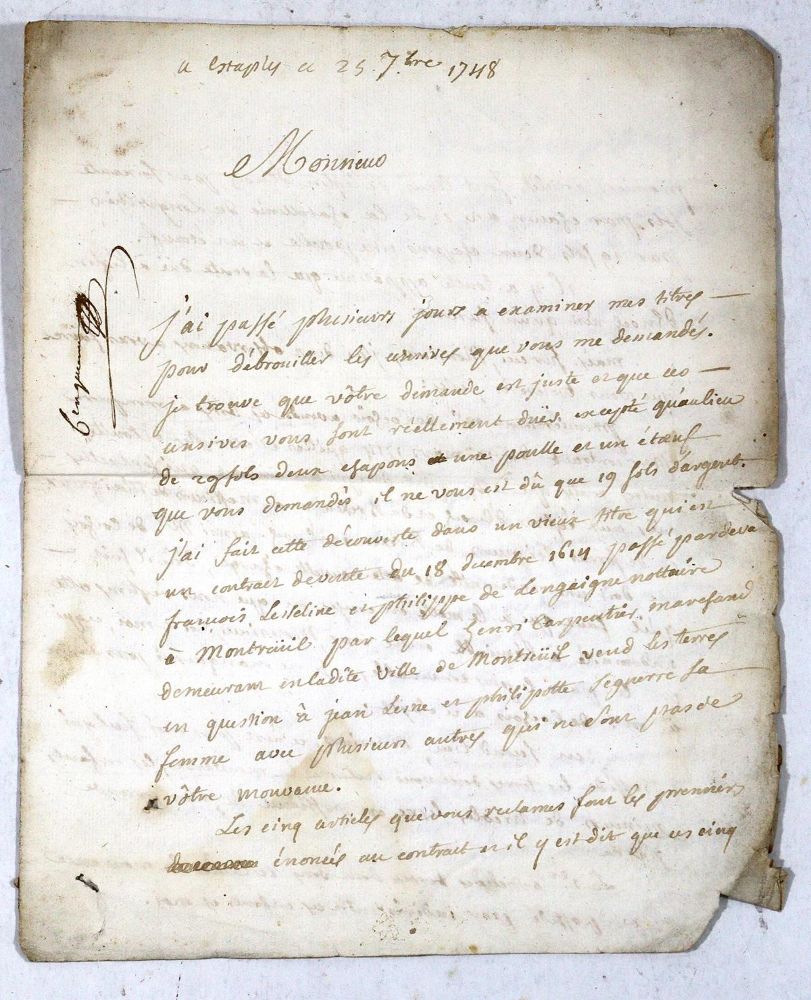 a Estaples ce 25 7bre 1748
Monsieur
j'ai passé plusieurs jours a examiner mes titres —
pour débrouiller les censives que vous me demandés.
je trouve que vôtre demande est juste et que ces —
censives vous sont réellement duës, excepté qu'aulieu
de 29 sols deux chapons et une poulle et un étœuf
que vous demandés il ne vous est dû que 19 sols d'argent.
j'ai fait cette découverte dans un vieux titre qui est
un contract de vente du 18 decembre 1614 passé pardeva
françois Lesseline et philippe de Lengaigne nottaire
à Montreüil par lequel henri Carpentier marchand
demeurant enladite ville de Montreüil vend les terres
en question à jean Lesne et philipotte Seguerre sa
femme avec plusieurs autres qui ne sont pas de
vôtre mouvance.
Les cinq articles que vous reclames sont les premiers
énoncés au contract et il y est dit que ces cinq